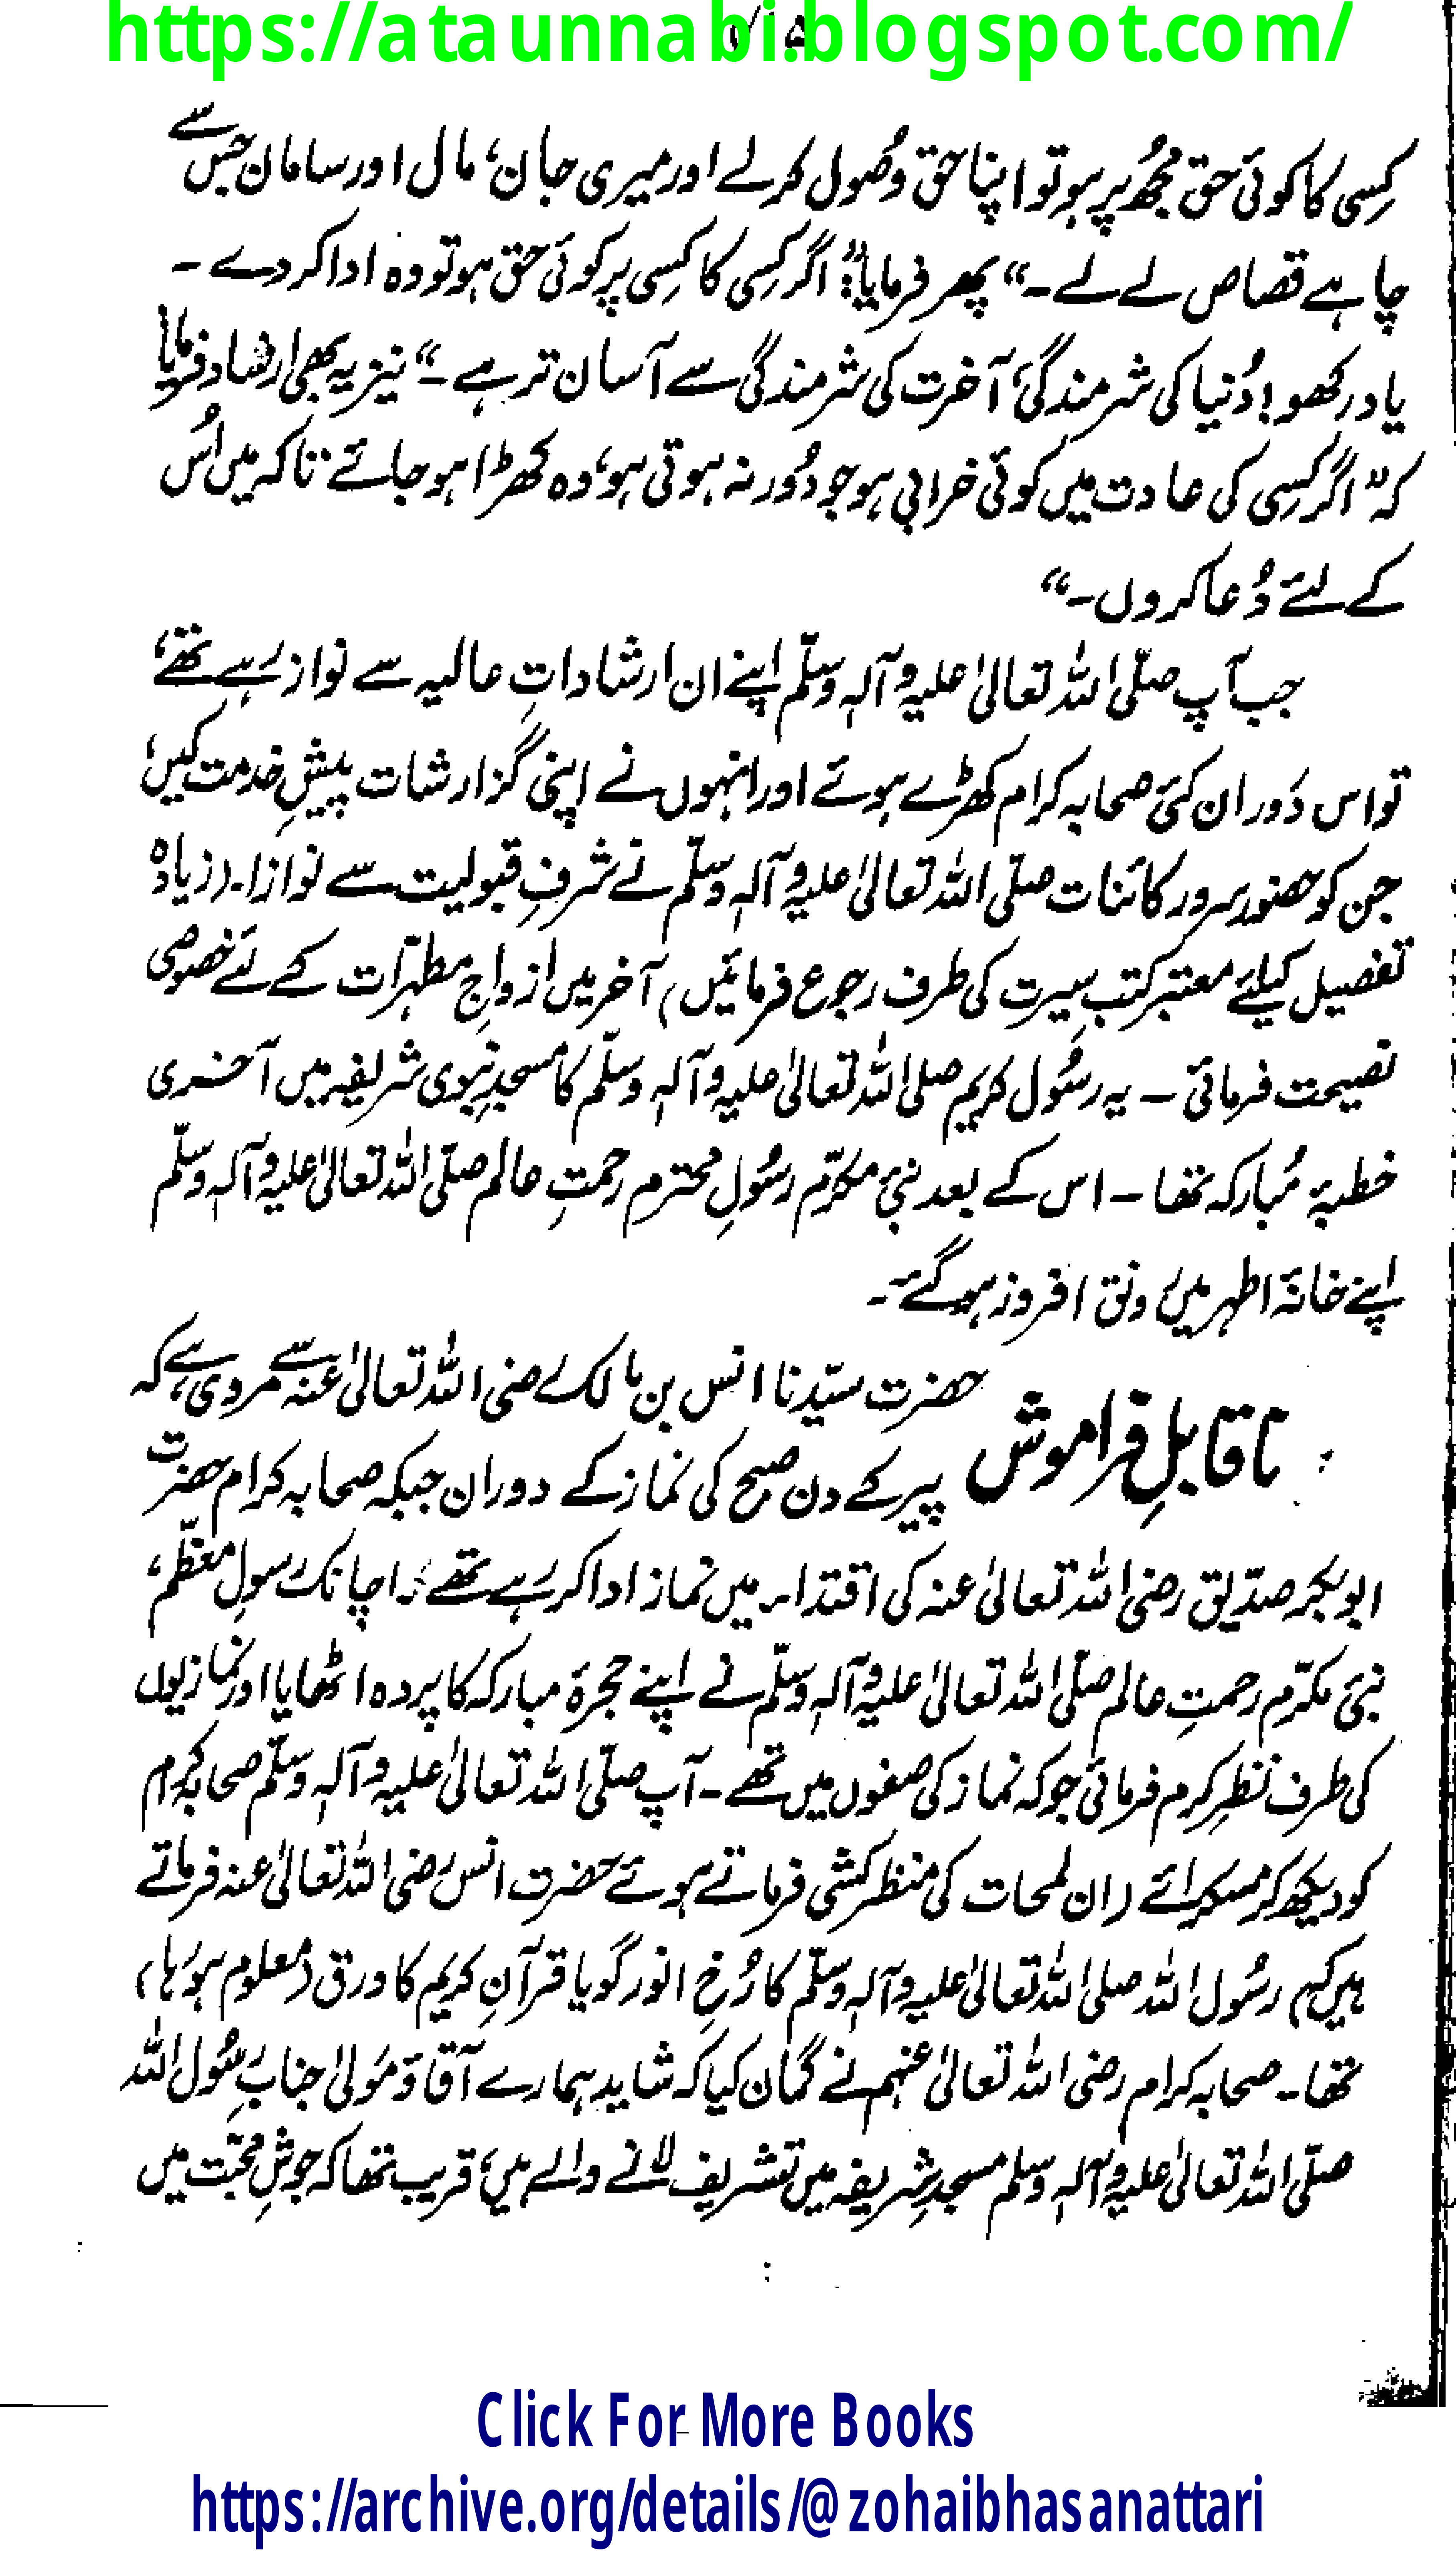 https://ataunnabi.blogspot.com/
کسی کا کوئی حق مجھ پر ہو تو اپنا حق وصول کر لے اور میری جان، مال اور سامان جس سے
چاہے قصاص لے لے۔“ پھر فرمایا: اگر کسی کا کسی پر کوئی حق ہو تو وہ ادا کر دے ۔
یاد رکھو! دُنیا کی شرمندگی، آخرت کی شرمندگی سے آسان تر ہے۔“ نیز یہ بھی ارشاد فرمایا
کہ ”اگر کسی کی عادت میں کوئی خرابی ہو جو دُور نہ ہوتی ہو، وہ کھڑا ہو جائے تاکہ میں اُس
کے لئے دُعا کروں۔“
جب آپ صلّی اللہ تعالیٰ علیہ وآلہٖ وسلّم اپنے ان ارشاداتِ عالیہ سے نواز رہے تھے،
تو اس دَوران کئی صحابہ کرام کھڑے ہوئے اور انہوں نے اپنی گزارشات پیشِ خدمت کیں،
جن کو حضور سرور کائنات صلّی اللہ تعالیٰ علیہ وآلہٖ وسلّم نے شرفِ قبولیت سے نوازا۔ (زیادہ
تفصیل کیلئے معتبر کتب سیرت کی طرف رجوع فرمائیں) آخر میں ازواجِ مطہرّات کے لئے خصوصی
نصیحت فرمائی ۔ یہ رسُول کریم صلی اللہ تعالیٰ علیہ وآلہٖ وسلّم کا مسجدِ نبوی شریفہ میں آخری
خطبۂ مُبارکہ تھا ۔ اس کے بعد نبیٔ مکرّم رسُولِ محترم رحمتِ عالم صلّی اللہ تعالیٰ علیہ وآلہٖ وسلّم
اپنے خانۂ اطہر میں رونق افروز ہو گئے ۔
ناقابلِ فراموش
حضرت سیّدنا انس بن مالک رضی اللہ تعالیٰ عنہ سے مروی ہے، کہ
پیر کے دن صبح کی نماز کے دوران جبکہ صحابہ کرام حضرت
ابوبکر صدّیق رضی اللہ تعالیٰ عنہ کی اقتداء میں نماز ادا کر رہے تھے، اچانک رسولِ معظّم،
نبیٔ مکرّم رحمتِ عالم صلّی اللہ تعالیٰ علیہ وآلہٖ وسلّم نے اپنے حجرۂ مبارکہ کا پردہ اٹھایا اور نمازیوں
کی طرف نظرِ کرم فرمائی جو کہ نماز کی صفوں میں تھے ۔ آپ صلّی اللہ تعالیٰ علیہ وآلہٖ وسلّم صحابہ کرام
کو دیکھ کر مسکرائے (ان لمحات کی منظر کشی فرماتے ہوئے حضرت انس رضی اللہ تعالیٰ عنہ فرماتے
ہیں کہ) رسُول اللہ صلی اللہ تعالیٰ علیہ وآلہٖ وسلّم کا رُخِ انور گویا قرآنِ کریم کا ورق (معلوم ہو رہا)
تھا۔ صحابہ کرام رضی اللہ تعالیٰ عنہم نے گمان کیا کہ شاید ہمارے آقا وَ مَولیٰ جناب رسُول اللہ
صلّی اللہ تعالیٰ علیہ وآلہٖ وسلم مسجدِ شریفہ میں تشریف لانے والے ہیں، قریب تھا کہ جوشِ محبّت میں
Click For More Books
https://archive.org/details/@zohaibhasanattari